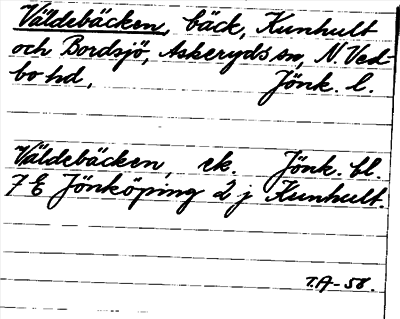 Väldebäcken, bäck, Kunhult
och Bordsjö, Askeryds sn, N. Ved-
bo hd, Jönk. l.
Väldebäcken, ek. Jönk. bl.
7 E Jönköping 2 j Kunhult.
T.A-58.